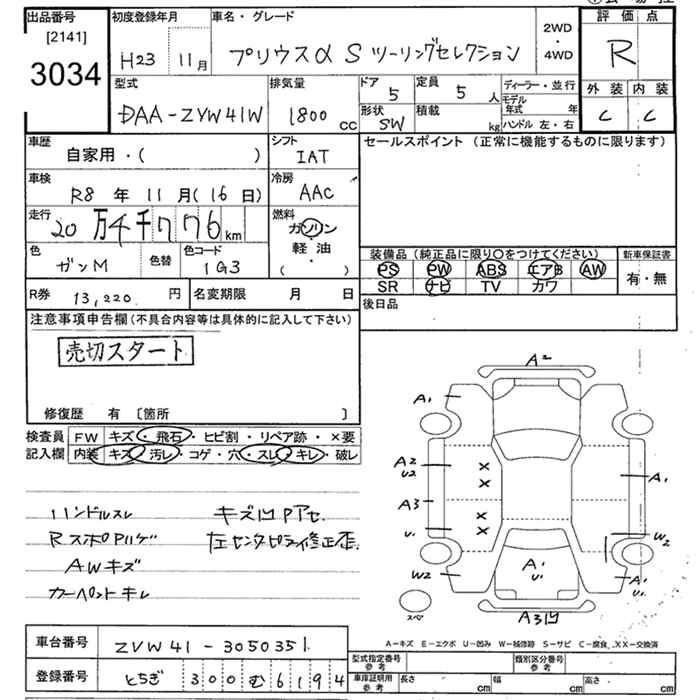 出品番号
[2141]
3034
初度登録年月
H23 11月
車名・グレード
プリウスα S ツーリングセレクション
2WD
・
4WD
評価点
R
外装 内装
C C
型式
DAA-ZYW41W
排気量
1800 cc
ドア
5
定員
5 人
形状
SW
積載
kg
ディーラー・並行
モデル
年式 年
ハンドル 左・右
車歴
自家用・( )
シフト
IAT
車検
R8 年 11 月(16 日)
冷房
AAC
走行
20万4千776km
燃料
ガソリン
軽・油
( )
色
ガンM
色替
色コード
1G3
R券 13,220 円
名変期限 月 日
セールスポイント (正常に機能するものに限ります)
装備品(純正品に限り〇をつけてください)
PS PW ABS エアB AW
SR ナビ TV カワ
新車保証書
有・無
後日品
注意事項申告欄(不具合内容等は具体的に記入して下さい)
売切スタート
修復歴 有 [箇所 ]
検査員
記入欄
FW キズ・飛石・ヒビ割・リペア跡・×要
内装 キズ・汚レ・コゲ・穴・スレ・キレ・破レ
ハンドルスレ キズ凹Pアセ
RスポPハゲ 左センターピラー修正歪
AWキズ
カーペットキレ
A2
A1
A2
U2
A3
U1
W2
A1
W2
A1
U1
A1
U1
スペア
A3凹
A-キズ E-エクボ U-凹み W-補修跡 S-サビ C-腐食 XX-交換済
車台番号 ZVW41-3050351
登録番号 とちぎ 300 む 6194
型式指定番号
参考
類別区分番号
参考
車庫証明用
参考
長さ cm
幅 cm
高さ cm